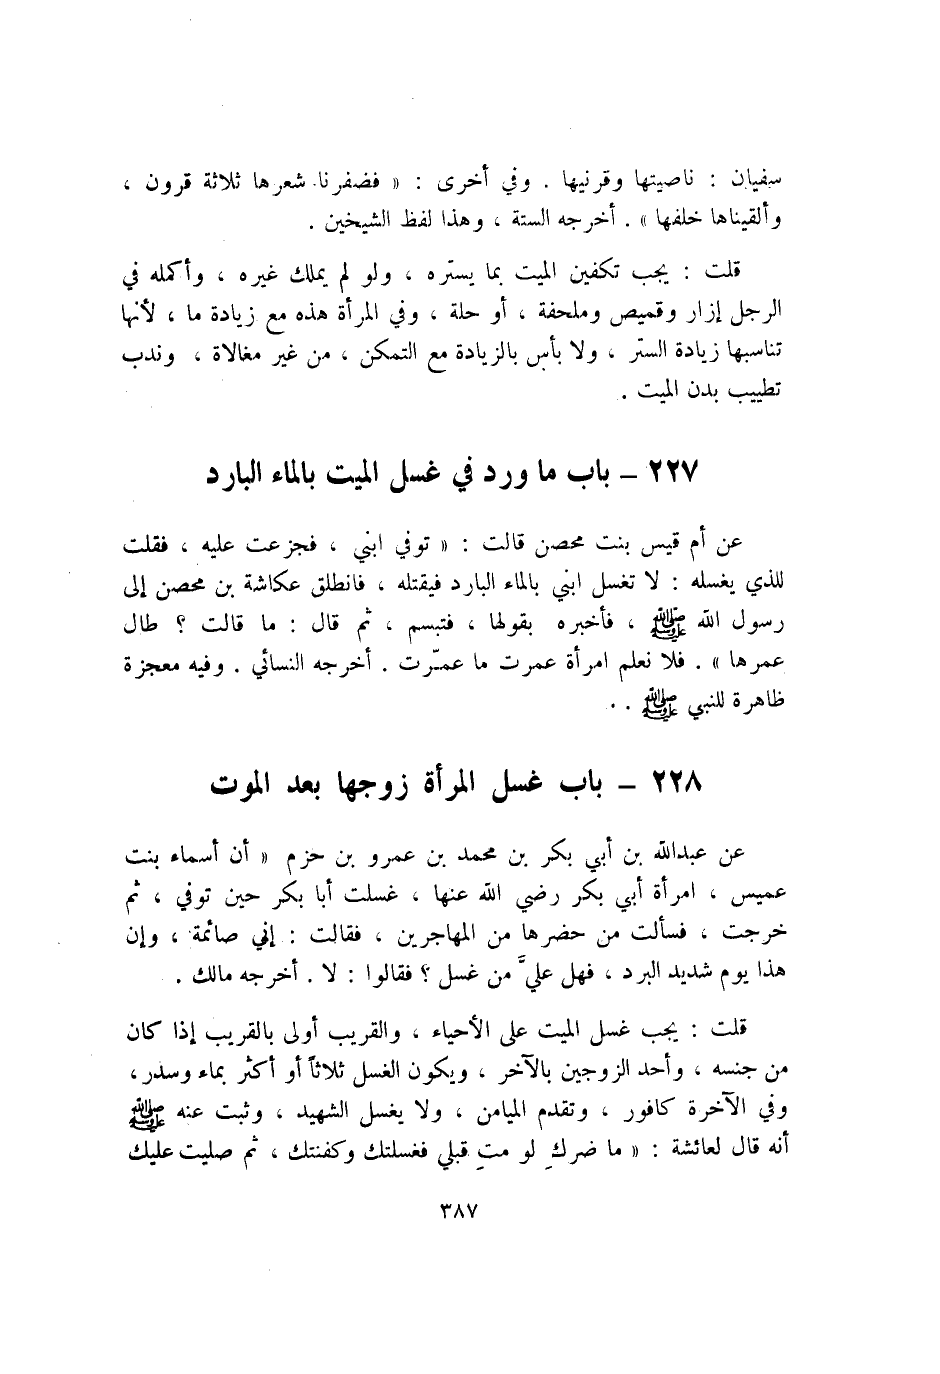 سفيان : ناصيتها وقرنيها . وفي أخرى : « فضفرنا شعرها ثلاثة قرون ،
وألقيناها خلفها » . أخرجه الستة ، وهذا لفظ الشيخين .
قلت : يجب تكفين الميت بما يستره ، ولو لم يملك غيره ، وأكمله في
الرجل إزار وقميص وملحفة ، أو حلة ، وفي المرأة هذه مع زيادة ما ، لأنها
تناسبها زيادة الستر ، ولا بأس بالزيادة مع التمكن ، من غير مغالاة ، وندب
تطييب بدن الميت .
٢٢٧ – باب ما ورد في غسل الميت بالماء البارد
عن أم قيس بنت محصن قالت : « توفي ابني ، فجزعت عليه ، فقلت
للذي يغسله : لا تغسل ابني بالماء البارد فيقتله ، فانطلق عكاشة بن محصن إلى
رسول الله ﷺ ، فأخبره بقولها ، فتبسم ، ثم قال : ما قالت ؟ طال
عمرها » . فلا نعلم امرأة عمرت ما عمّرت . أخرجه النسائي . وفيه معجزة
ظاهرة للنبي ﷺ . .
٢٢٨ – باب غسل المرأة زوجها بعد الموت
عن عبدالله بن أبي بكر بن محمد بن عمرو بن حزم « أن أسماء بنت
عميس ، امرأة أبي بكر رضي الله عنها ، غسلت أبا بكر حين توفي ، ثم
خرجت ، فسألت من حضرها من المهاجرين ، فقالت : إني صائمة ، وإن
هذا يوم شديد البرد ، فهل عليَّ من غسل ؟ فقالوا : لا . أخرجه مالك .
قلت : يجب غسل الميت على الأحياء ، والقريب أولى بالقريب إذا كان
من جنسه ، وأحد الزوجين بالآخر ، ويكون الغسل ثلاثاً أو أكثر بماء وسدر،
وفي الآخرة كافور ، وتقدم الميامن ، ولا يغسل الشهيد ، وثبت عنه ﷺ
أنه قال لعائشة : « ما ضركِ لو متِ قبلي فغسلتك وكفنتك ، ثم صليت عليك
٣٨٧